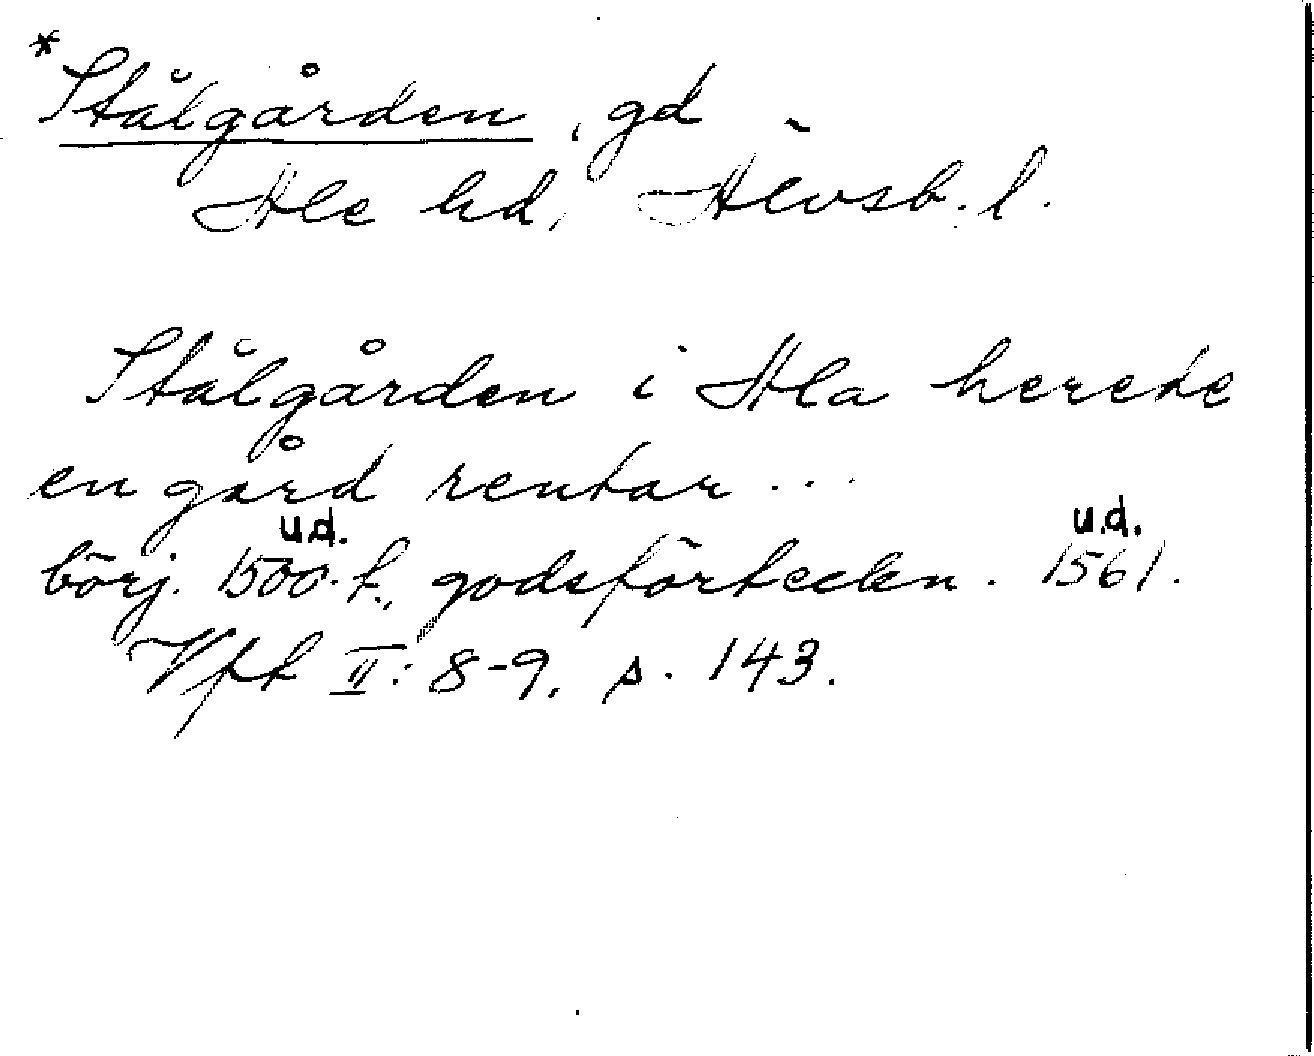 *Stålgården, gd
Ale hd, Älvsb. l.
Stålgården i Ala herede
en gård rentar...
u.d. u.d.
börj. 1500-t., godsförteckn. 1561.
Vft II: 8-9, s. 143.